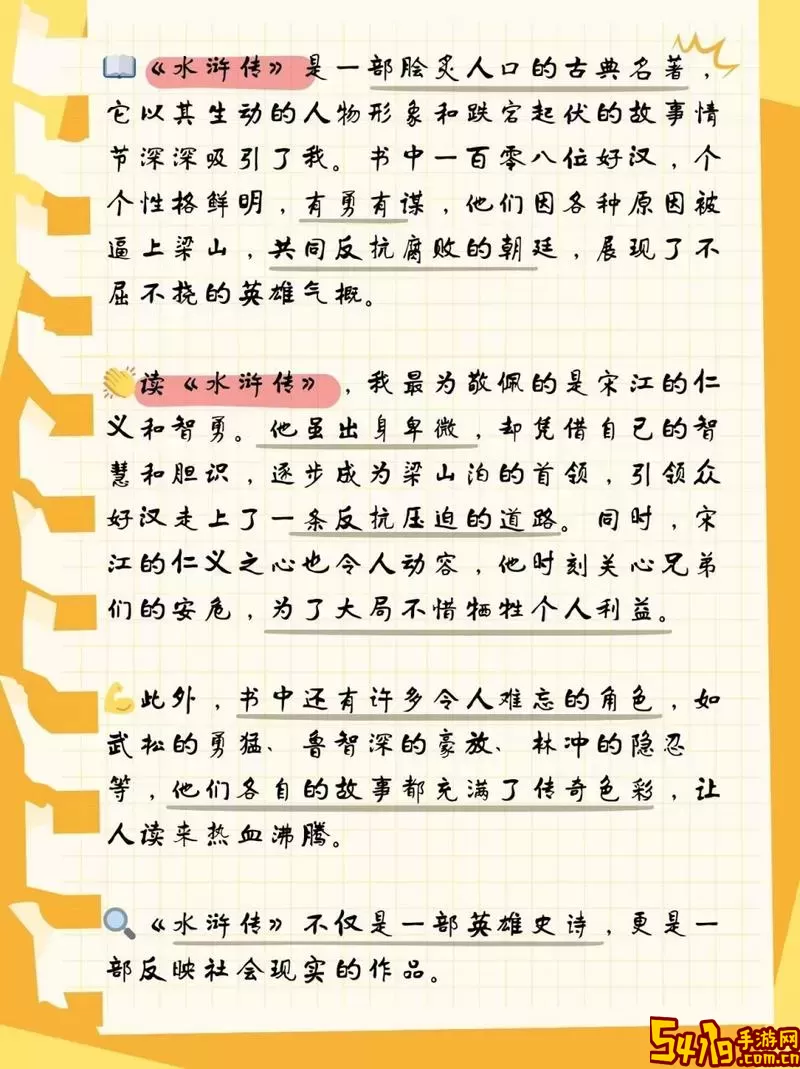 《水浒传》是一部脍炙人口的古典名著，
它以其生动的人物形象和跌宕起伏的故事情
节深深吸引了我。书中一百零八位好汉，个
个性格鲜明，有勇有谋，他们因各种原因被
逼上梁山，共同反抗腐败的朝廷，展现了不
屈不挠的英雄气概。
读《水浒传》，我最为敬佩的是宋江的仁
义和智勇。他虽出身卑微，却凭借自己的智
慧和胆识，逐步成为梁山泊的首领，引领众
好汉走上了一条反抗压迫的道路。同时，宋
江的仁义之心也令人动容，他时刻关心兄弟
们的安危，为了大局不惜牺牲个人利益。
此外，书中还有许多令人难忘的角色，如
武松的勇猛、鲁智深的豪放、林冲的隐忍
等，他们各自的故事都充满了传奇色彩，让
人读来热血沸腾。
《水浒传》不仅是一部英雄史诗，更是一
部反映社会现实的作品。
5419手游网
.com.cn